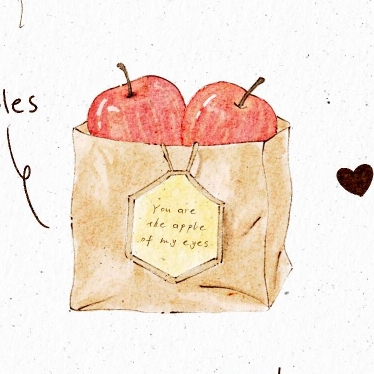 les
You are
the apple
of my eyes